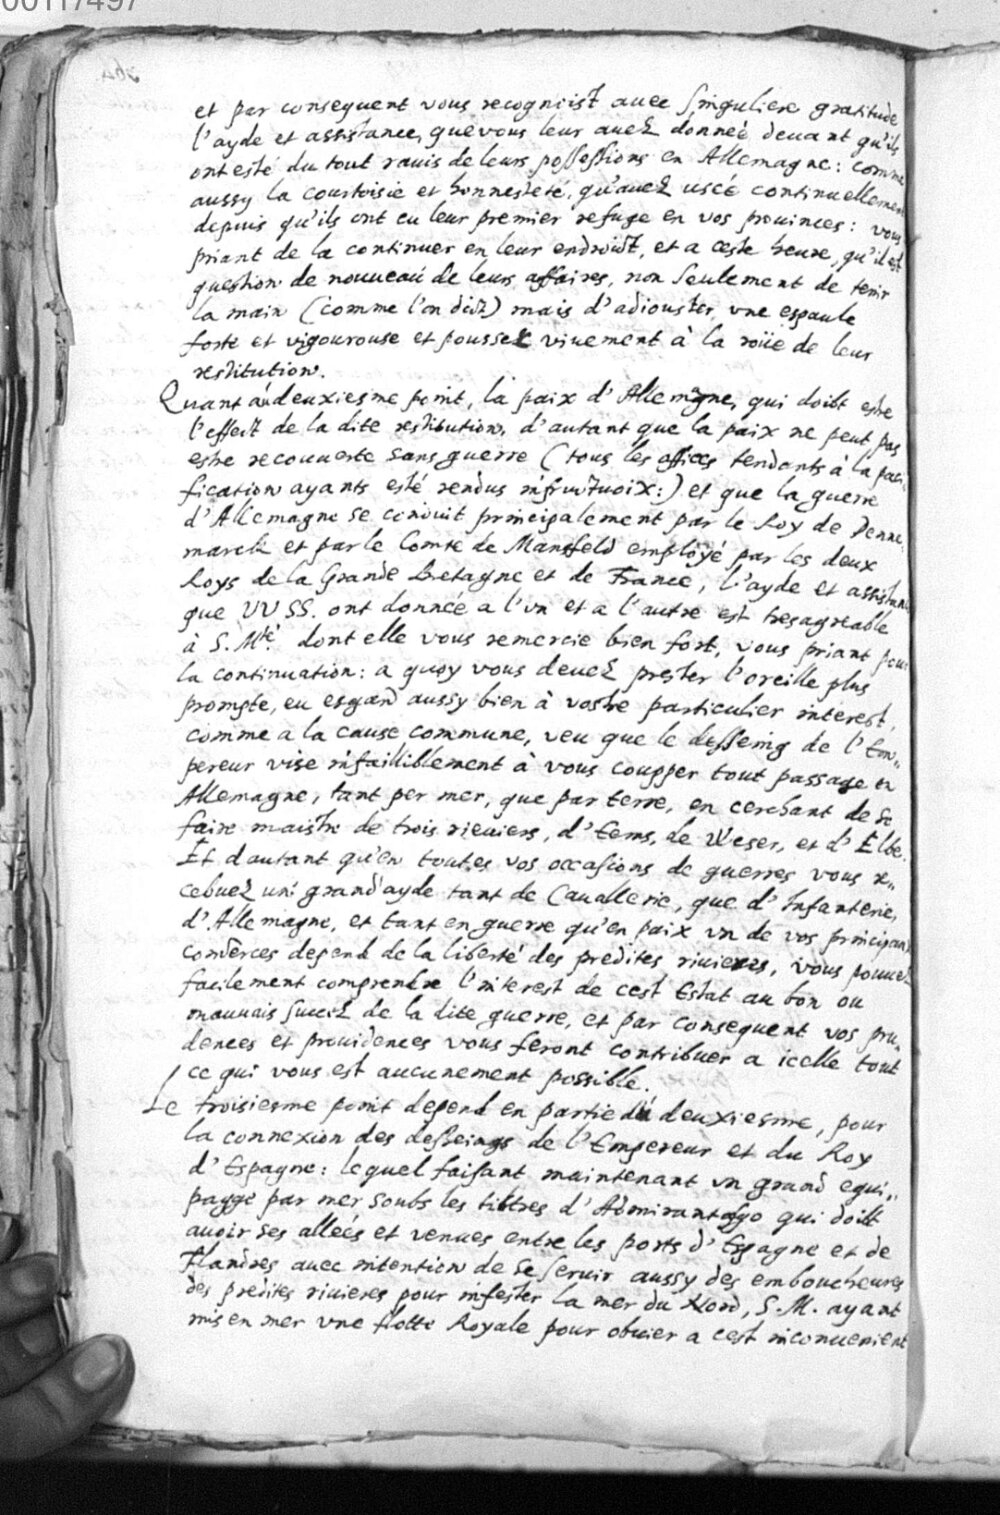 00117497
364
et par consequent vous recognoist auec singuliere gratitude
l'ayde et assistance, que vous leur auez donneé deuant qu'ils
ont esté du tout rauis de leurs possessions en Allemagne: comme
aussy la courtoisie et honnesteté, qu'auez uscé continuellement
depuis qu'ils ont eu leur premier refuge en vos prouinces: vous
priant de la continuer en leur endroidt, et a ceste heure, qu'il est
question de nouueau de leurs affaires, non seulement de tenir
la main (comme l'on dict) mais d'adiouster, vne espaule
forte et vigourouse et pousser viuement à la roüe de leur
restitution.
Quant au deuxiesme point, la paix d'Allemagne, qui doibt estre
l'effect de la dite restitution, d'autant que la paix ne peut pas
estre recouuerte sans guerre (tous les offices tendants à la paci,,
fication ayants esté rendus infructuoix:) et que la guerre
d'Allemagne se conduit principalement par le Roy de Denne,,
marck et par le Comte de Mansfeld employé par les deux
Roys de la Grande Bretagne et de France, l'ayde et assistance
que VVSS. ont donnée a l'vn et a l'autre est tresagreable
à S. Mté. dont elle vous remercie bien fort, vous priant pour
la continuation: a quoy vous deuez prester l'oreille plus
prompte, eu esgard aussy bien à vostre particulier interest,
comme a la cause commune, veu que le desseing de l'Em,,
pereur vise infailliblement à vous coupper tout passage en
Allemagne, tant per mer, que par terre, en cerchant de se
faire maistre de trois rieuiers, d'Ems, de Weser, et d'Elbe.
Et dautant qu'en toutes vos occasions de guerres vous re,,
cebuez un grand'ayde tant de Cauallerie, que d'Infanterie,
d'Allemagne, et tant en guerre qu'en paix vn de vos principaux
comerces depend de la liberté des predites riuieres, vous pouuez
facilement comprendre l'interest de cest Estat au bon ou
mauuais succez de la dite guerre, et par consequent vos pru,,
dences et prouidences vous feront contribuer a icelle tout
ce qui vous est aucunement possible.
Le troisiesme point depend en partie du deuxiesme, pour
la connexion des desseings de l'Empereur et du Roy
d'Espagne: lequel faisant maintenant vn grand equi,,
page par mer soubs les tiltres d'Admirantasgo qui doibt
auoir ses alleés et venues entre les ports d'Espagne et de
Flandres auec intention de se seruir aussy des emboucheures
des predites riuieres pour infester la mer du Nord, S. M. ayant
mis en mer vne flotte Royale pour obuier a cest inconuenient